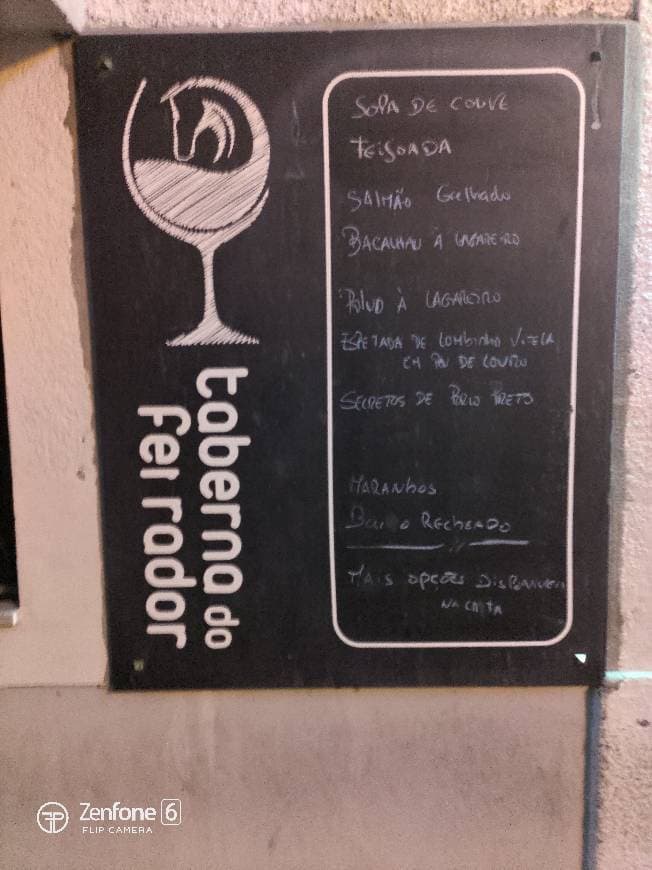 SOPA DE COUVE
FEIJOADA
SALMÃO Grelhado
BACALHAU À LAGAREIRO
POLVO À LAGAREIRO
ESPETADA DE LOMBINHO VITELA
EM PAU DE LOURO
SECRETOS DE PORCO PRETO
MARANHOS
RECHEADO
MAIS OPÇÕES DISPONIVEIS
NA CARTA
taberna do
ferrador
Zenfone 6
FLIP CAMERA